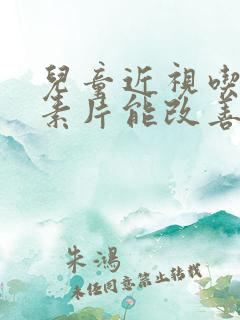 兒童近視喫
素片能改善
朱鴻
未任同意禁止轉載